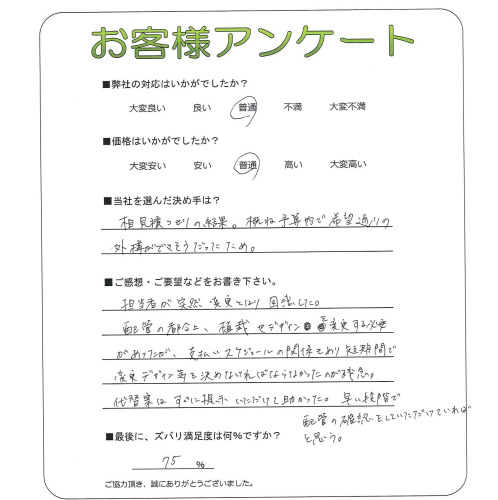 お客様アンケート
■弊社の対応はいかがでしたか?
大変良い 良い 普通 不満 大変不満
■価格はいかがでしたか?
大変安い 安い 普通 高い 大変高い
■当社を選んだ決め手は?
相見積もりの結果。概ね予算内で希望通りの
外構ができそうだったため。
■ご感想・ご要望などをお書き下さい。
担当者が突然変更となり困惑した。
配管の都合上、植栽やデザインを変更する必要
があったが、支払いスケジュールの関係もあり短期間で
変更デザイン等を決めなければならなかったのが残念。
代替案はすぐに提示いただけて助かった。早い段階で
配管の確認をしていただけていれば
と思う。
■最後に、ズバリ満足度は何%ですか?
75 %
ご協力頂き、誠にありがとうございました。